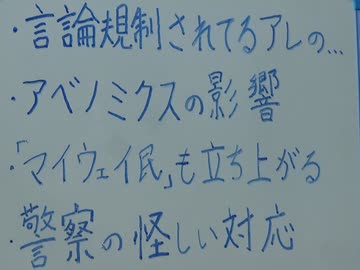 ・言論規制されてるアレの...
・アベノミクスの影響
・「マイウェイ民」も立ち上がる
・警察の怪しい対応